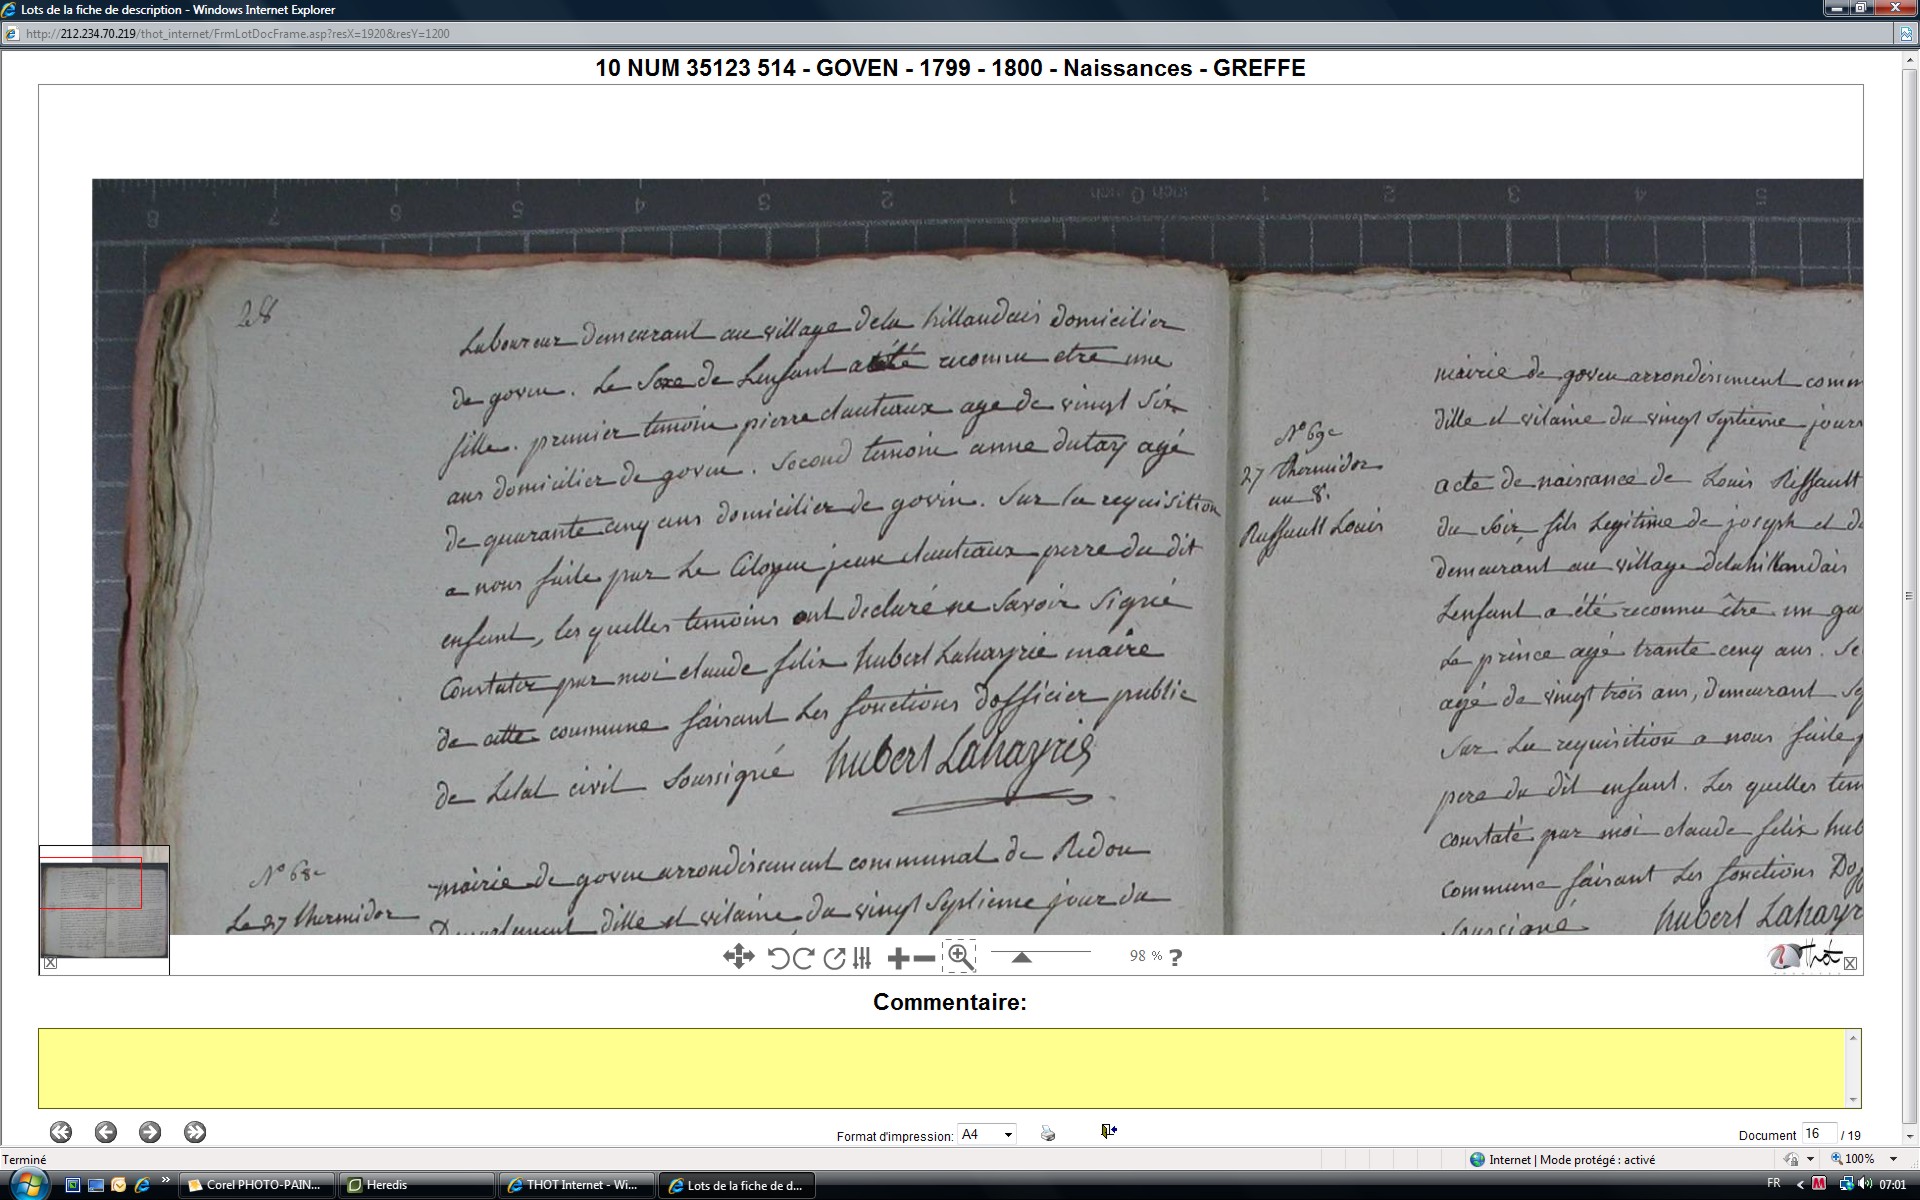 Lots de la fiche de description - Windows Internet Explorer
http://212.234.70.219/thot_internet/FrmLotDocFrame.asp?resX=1920&resY=1200
10 NUM 35123 514 - GOVEN - 1799 - 1800 - Naissances - GREFFE
8 7 6 5 4 3 2 1 inch 0 inch 1 2 3 4 5
28
Laboureur demeurant au village dela hillandais domicilier
de goven. Le Sexe de Lenfant a été reconnu etre une
fille. premier temoin pierre dautiaux age de vingt Six
ans domicilier de goven. Second temoin anne dutay agé
de quarante cinq ans domicilier de govin. Sur la requisition
a nous faite par Le Citoyen jean dautiaux perre du dit
enfant, les quelles temoins ont declaré ne Savoir Signé
Constater par moi claude felix hubert Lahayrie maire
de cette commune faisant Les fonctions dofficier public
de Letat civil Soussigné hubert Lahayrie
N° 68e
Le 27 thermidor
mairie de goven arrondissement communal de Redon
Departement dille et vilaine du vingt Septieme jour du
N° 69e
27 thermidor
an 8.
Ruffault Louis
mairie de goven arrondissement comm
dille et vilaine du vingt Septieme jours
acte de naissance de Louis Riffault
du Soir, fils Legitime de joseph et de
demeurant au village delahillandais
Lenfant a été reconnu être un ga
Le prince agé trante cinq ans. Se
agé de vingt trois ans, demeurant
Sur La requisition a nous faite p
pere du dit enfant. Les quelles tem
constaté par moi claude felix hub
commune faisant Les fonctions Dof
Soussigné hubert Lahayr
98 % ?
Thot
Commentaire:
Format d'impression: A4
Document 16 / 19
Terminé
Internet | Mode protégé : activé
100%
Corel PHOTO-PAIN...
Heredis
THOT Internet - Wi...
Lots de la fiche de d...
FR
07:01